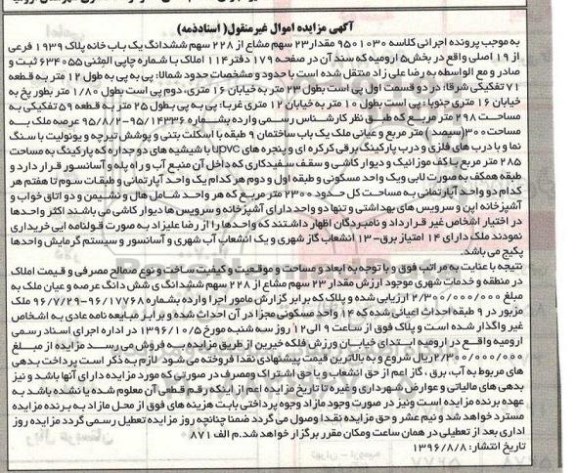 آگهی مزایده اموال غیرمنقول( اسنادذمه)
به موجب پرونده اجرائی کلاسه ۹۵۰۱۰۳۰ مقدار۲۳ سهم مشاع از ۲۲۸ سهم ششدانگ یک باب خانه پلاک ۱۹۳۹ فرعی
از ۱۹ اصلی واقع در بخش۵ ارومیه که سند آن در صفحه ۱۷۹ دفتر ۱۱۴ املاک با شماره چاپی المثنی ۶۳۴۰۵۵ ثبت و
صادر و مع الواسطه به رضا علی زاد منتقل شده است با حدود و مشخصات حدود شمالا: پی به پی به طول ۱۲ متر به قطعه
۷۱ تفکیکی شرقا: در دو قسمت اول پی است بطول ۲۳ متر به خیابان ۱۶ متری، دوم پی است بطول ۱/۸۰ متر بطور پخ به
خیابان ۱۶ متری جنوبا: پی است بطول ۱۰ متر به خیابان ۱۲ متری غربا: پی به پی بطول ۲۵ متر به قطعه ۵۹ تفکیکی به
مساحت ۲۹۸ متر مربع که طبق نظر کارشناس رسمی وارده بشماره ۹۵/۱۴۳۳۶-۹۵/۸/۲ عرصه ملک به
مساحت ۳۰۰(سیصد) متر مربع و عیانی ملک یک باب ساختمان ۹ طبقه با اسکلت بتنی و پوشش تیرچه و یونولیت با سنگ
نما و با درب های فلزی و درب پارکینگ برقی کرکره ای و پنجره های upvc با شیشیه های دو جداره که پارکینگ به مساحت
۲۸۵ متر مربع با کف موزائیک و دیوار کاشی و سقف سفیدکاری که داخل آن منبع آب و راه پله و آسانسور قرار دارد و
طبقه همکف به صورت لابی ویک واحد مسکونی و طبقه اول و دوم هر کدام یک واحد آپارتمانی و طبقات سوم تا هفتم هر
کدام دو واحد آپارتمانی به مساحت کل حدود ۲۳۰۰ متر مربع که هر واحد شامل هال و نشیمن و دو اتاق خواب و
آشپزخانه اپن و سرویس های بهداشتی و تنها دو واحد دارای آشپزخانه و سرویس ها دیوار کاشی می باشند اکثر واحدها
در اختیار اشخاص غیر قرارداد و نامبردگان اظهار داشتند که واحدها را از رضا علیزاد به صورت قولنامه ایی خریداری
نمودند ملک دارای ۱۴ امتیاز برق-۱۳ انشعاب گاز شهری و یک انشعاب آب شهری و آسانسور و سیستم گرمایش واحدها
پکیج می باشد.
نتیجه با عنایت به مراتب فوق و با توجه به ابعاد و مساحت و موقعیت و کیفیت ساخت و نوع مصالح مصرفی و قیمت املاک
در منطقه و خدمات شهری موجود ارزش مقدار ۲۳ سهم مشاع از ۲۲۸ سهم ششدانگ ی شش دانگ عرصه و عیان ملک به
مبلغ ۲/۳۰۰/۰۰۰/۰۰۰ ارزیابی شده و پلاک که برابر گزارش مامور اجرا وارده بشماره ۹۶/۱۷۷۶۸-۹۶/۷/۲۹ ملک
مزبور در ۹ طبقه احداث اعیانی شده که ۱۳ واحد مسکونی مجزا در آن احداث شده و برابر مبایعه نامه عادی به اشخاص
غیر واگذار شده است و پلاک فوق از ساعت ۹ الی ۱۲ روز سه شنبه مورخ ۱۳۹۶/۱۰/۵ در اداره اجرای اسناد رسمی
ارومیه واقع در ارومیه ابتدای خیابان ورزش فلکه خیرین از طریق مزایده به فروش می رسد مزایده از مبلغ
۲/۳۰۰/۰۰۰/۰۰۰ریال شروع و به بالاترین قیمت پیشنهادی نقدا فروخته می شود لازم به ذکر است پرداخت بدهی
های مربوط به آب، برق ، گاز اعم از حق انشعاب و یا حق اشتراک ومصرف در صورتی که مورد مزایده دارای آنها باشد و نیز
بدهی های مالیاتی و عوارض شهرداری و غیره تا تاریخ مزایده اعم از اینکه رقم قطعی آن معلوم شده یا نشده باشد به
عهده برنده مزایده است ونیز در صورت وجود مازاد وجوه پرداختی بابت هزینه های فوق از محل مازاد به برنده مزایده
مسترد خواهد شد و نیم عشر و حق مزایده نقدا وصول می گردد ضمنا چنانچه روز مزایده تعطیل رسمی گردد مزایده روز
اداری بعد از تعطیلی در همان ساعت ومکان مقرر برگزار خواهد شد.م الف ۸۷۱
تاریخ انتشار: ۱۳۹۶/۸/۸